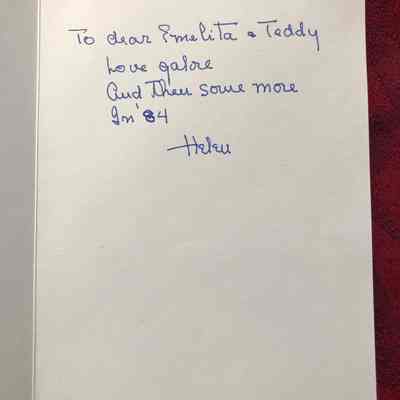 To dear Emelita & Teddy
Love galore
And Then some more
In '84
Helen